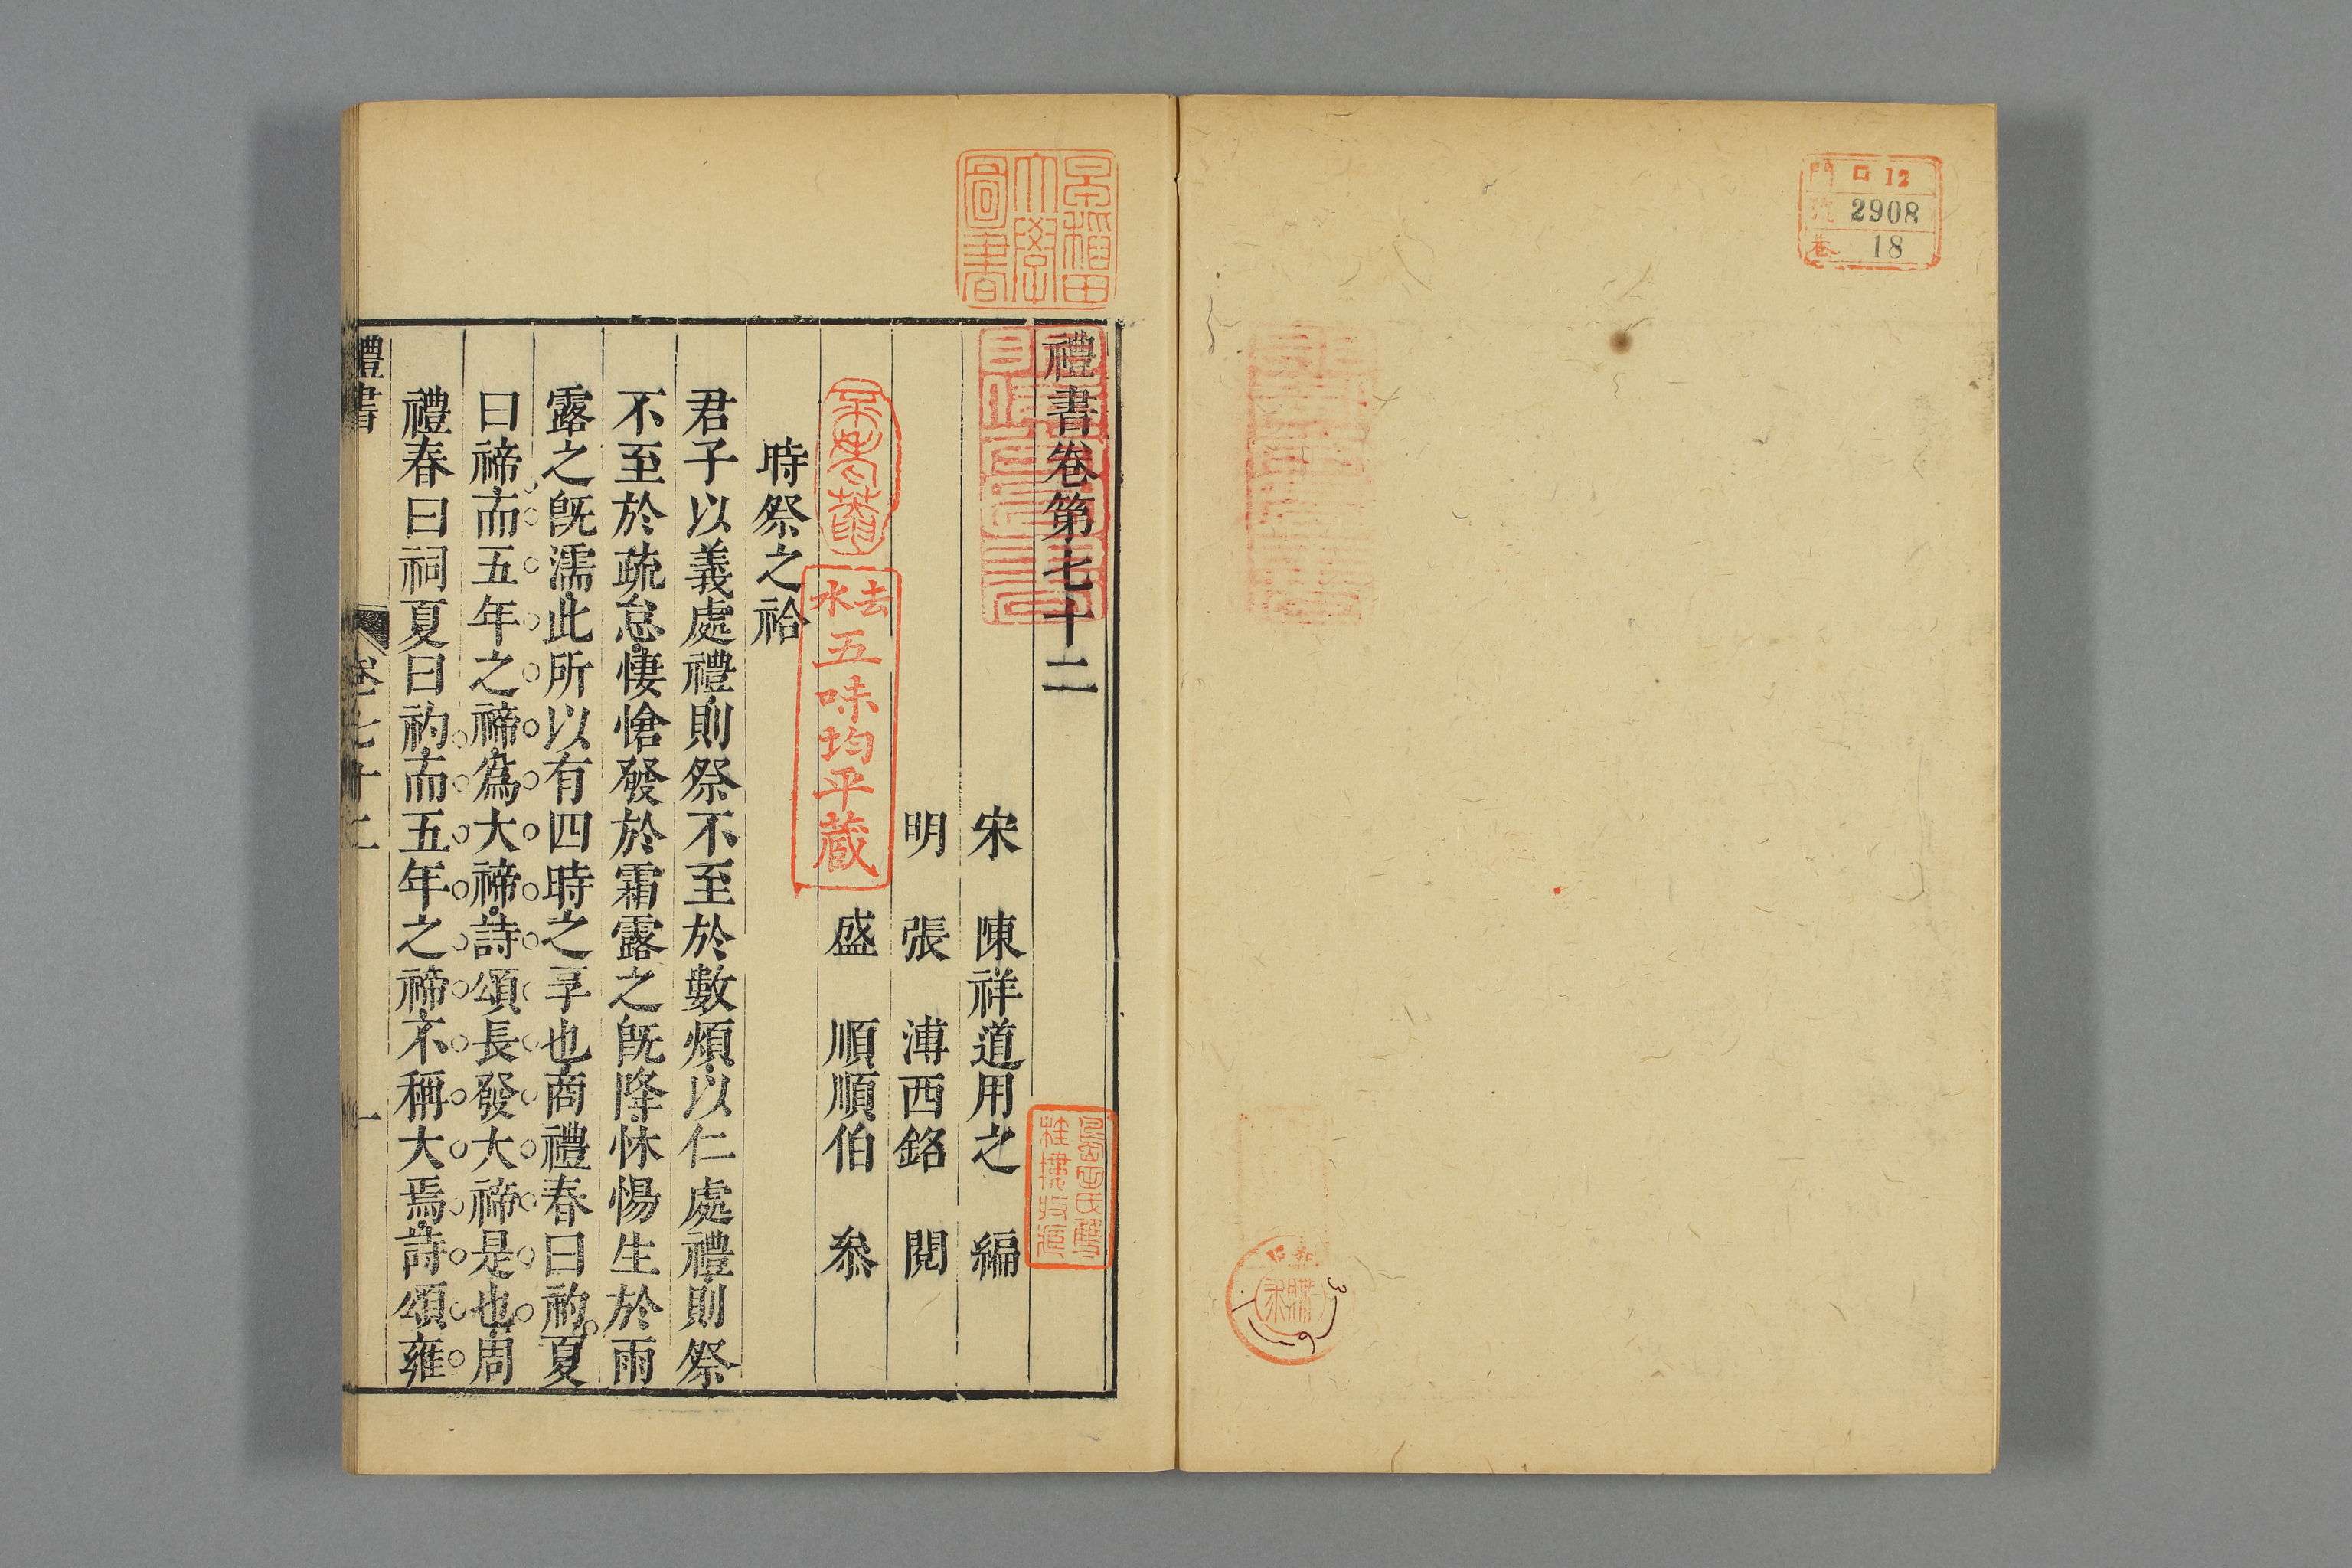 門 ロ12
號 2908
巻 18
早稲田
大學
圖書
禮書卷第七十二
宋 陳祥道用之 編
明 張 溥西銘 閱
盛 順順伯 叅
去水
五味均平蔵
時祭之祫
君子以義處禮則祭不至於數煩以仁處禮則祭
不至於疏怠悽愴發於霜露之旣降怵惕生於雨
露之旣濡此所以有四時之享也商禮春曰礿夏
曰禘而五年之禘爲大禘詩頌長發大禘是也周
禮春曰祠夏曰礿而五年之禘不稱大焉詩頌雍
禮書 卷七十二 一